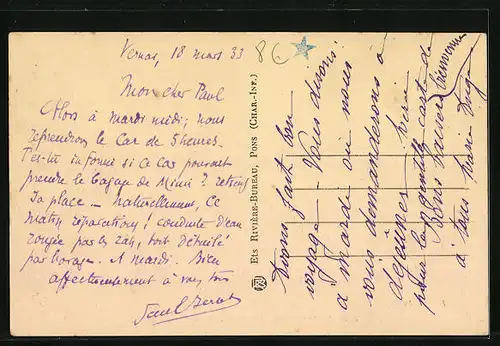 Vernas, 18 mars 33
86
Mon cher Paul
Alors à mardi midi; nous
reprendrons le Car de 5 heures.
T'es-tu informé si ce Car pourrait
prendre le bagage de Mimi ? retiens
sa place — naturellement, ce
matin réparations ! conduite d'eau
rongée par les rats, tout
par l'orage. A mardi. Bien
affectueusement à vous tous
Ets RIVIÈRE-BUREAU, PONS (CHAR.-INF.)
Avons fait bon
voyage — Vous disons
à mardi où nous
vous demanderons à
déjeuner. Merci
pour la gentille carte de
Bons baisers
à tous